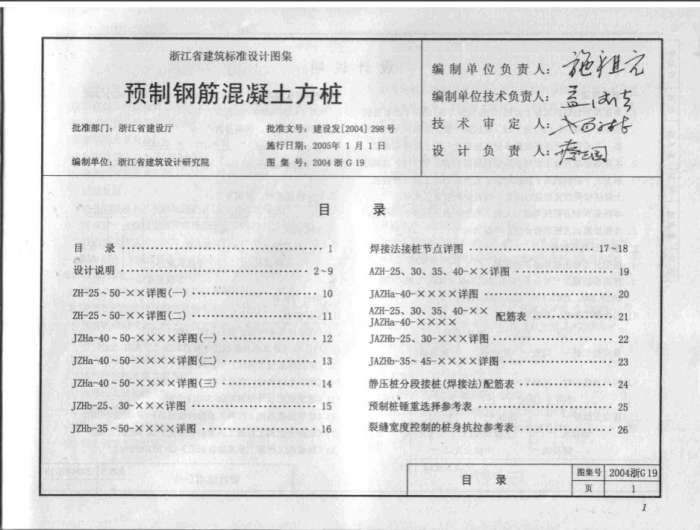 浙江省建筑标准设计图集
预制钢筋混凝土方桩
批准部门：浙江省建设厅
批准文号：建设发[2004] 298号
施行日期：2005年 1月 1日
编制单位：浙江省建筑设计研究院
图 集 号：2004 浙 G 19
编制单位负责人：
编制单位技术负责人：
技 术 审 定 人：
设 计 负 责 人：
目 录
目 录 ………………………… 1
设计说明 ………………………… 2~9
ZH-25~50-××详图(一) ………………………… 10
ZH-25~50-××详图(二) ………………………… 11
JZHa-40~50-××××详图(一) ………………………… 12
JZHa-40~50-××××详图(二) ………………………… 13
JZHa-40~50-××××详图(三) ………………………… 14
JZHb-25、30-×××详图 ………………………… 15
JZHb-35~50-××××详图 ………………………… 16
焊接法接桩节点详图 ………………………… 17~18
AZH-25、30、35、40-××详图 ………………………… 19
JAZHa-40-××××详图 ………………………… 20
AZH-25、30、35、40-××
JAZHa-40-×××× 配筋表 ………………………… 21
JAZHb-25、30-×××详图 ………………………… 22
JAZHb-35~45-××××详图 ………………………… 23
静压桩分段接桩(焊接法)配筋表 ………………………… 24
预制桩锤重选择参考表 ………………………… 25
裂缝宽度控制的桩身抗拉参考表 ………………………… 26
目 录
图集号 2004浙G19
页 1
1